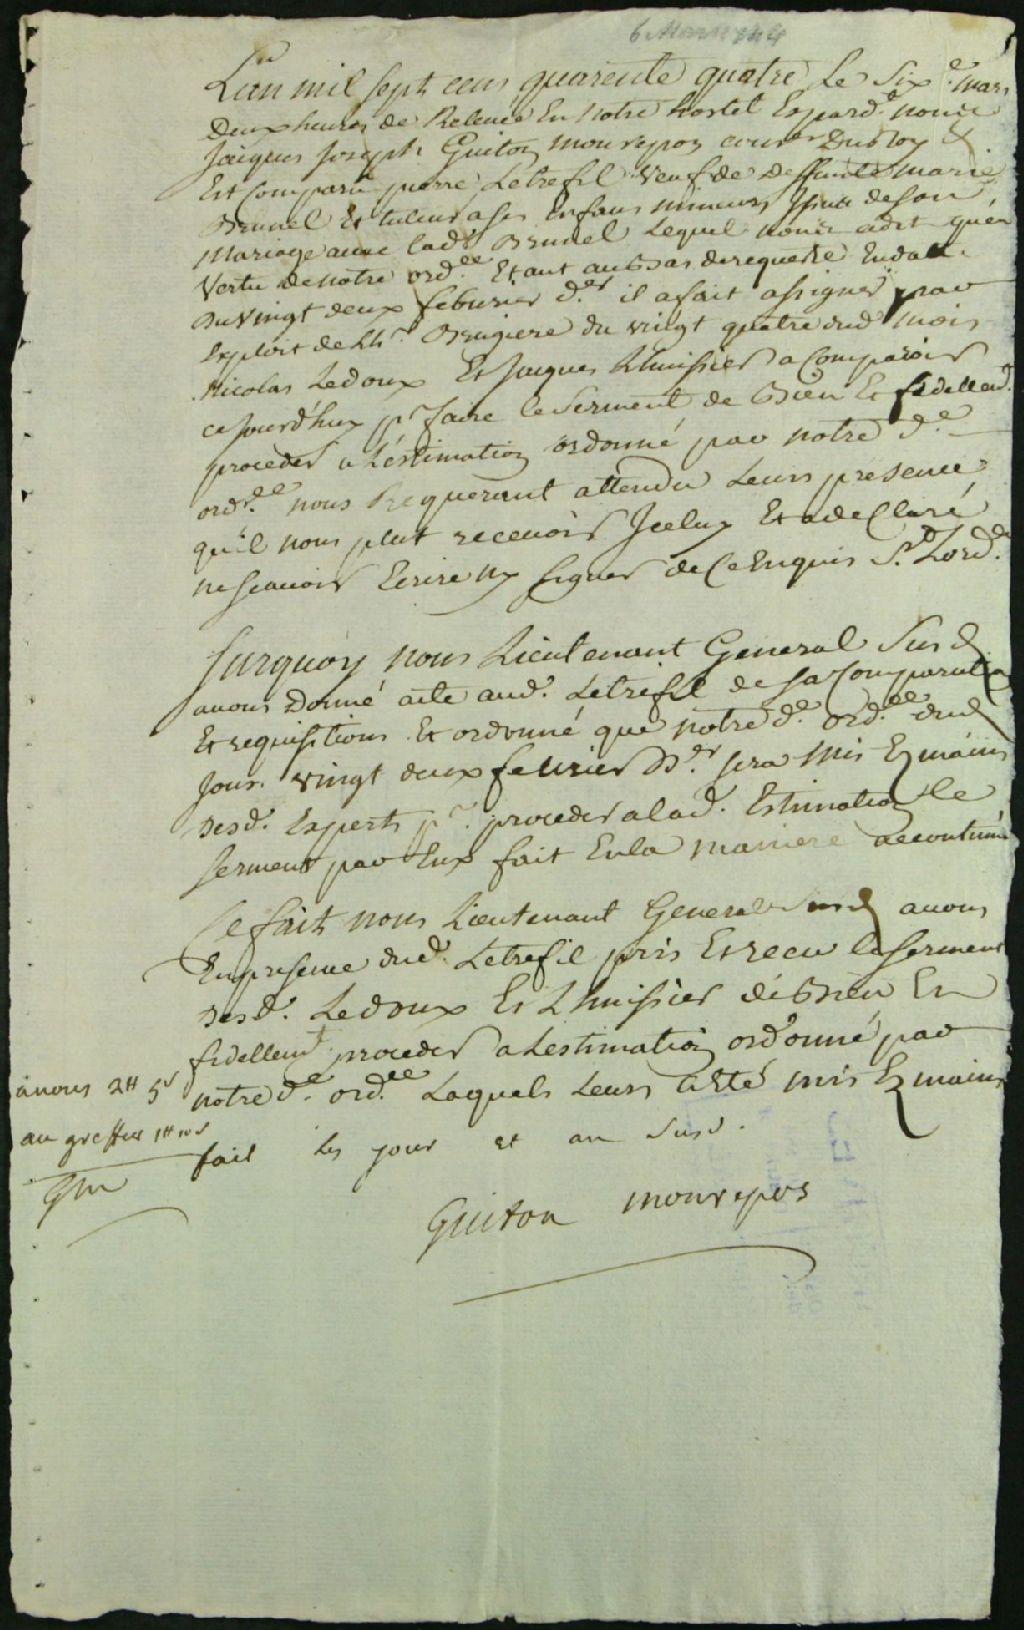 6 Mars 1744
L'an mil sept cens quarente quatre le six.e mars
deux heures de Relevée En Notre hostel Et pard.t nous
Jacques Joseph Guiton monrepos con.er Du Roy &
Est Comparu pierre Letrefil Veuf de Deffunte marie
Brunel Et tuteur a ses Enfans mineurs Issus de son
mariage avec lad.e Brunel Lequel nous a dit qu'en
Vertu de notre ord.ce Etant au bas de requeste En datte
du vingt deux feburier d.er il a fait assigner par
Exploit de Brugiere du vingt quatre dud mois
Nicolas Ledoux Et Jacques Lhuissier a Comparoir
ce Jourd'huy p.r faire le Serment de bien Et fidellem.t
proceder a L'estimation ordonné par notre d.e
ord.ce nous Requerant attendu Leurs presence
qu'il nous plut recevoir Iceluy Et a declaré
ne scavoir Ecrire ny signer de ce Enquis S.t Lord.ce
Surquoy nous Lieutenant General Susd
avons Donné acte aud. Letrefil de sa Comparution
Et requisitions Et ordonné que notre d.e ord.ce dud
Jour vingt deux fevrier D.er sera mis En mains
desd. Experts p.r proceder a lad. Estimation le
serment par Eux fait En la maniere accoutumée
Ce fait nous Lieutenant General Susd avons
En presence dud. Letrefil pris Et receu le serment
desd. Ledoux Et Lhuissier de bien Et
fidellem.t proceder a Lestimation ordonné par
notre d.e ord.ce Laquels Leurs a Eté mis En mains
fait les jour et an susd.
a nous 2# 5s
au greffier 1# 10s
GM
Guiton monrepos